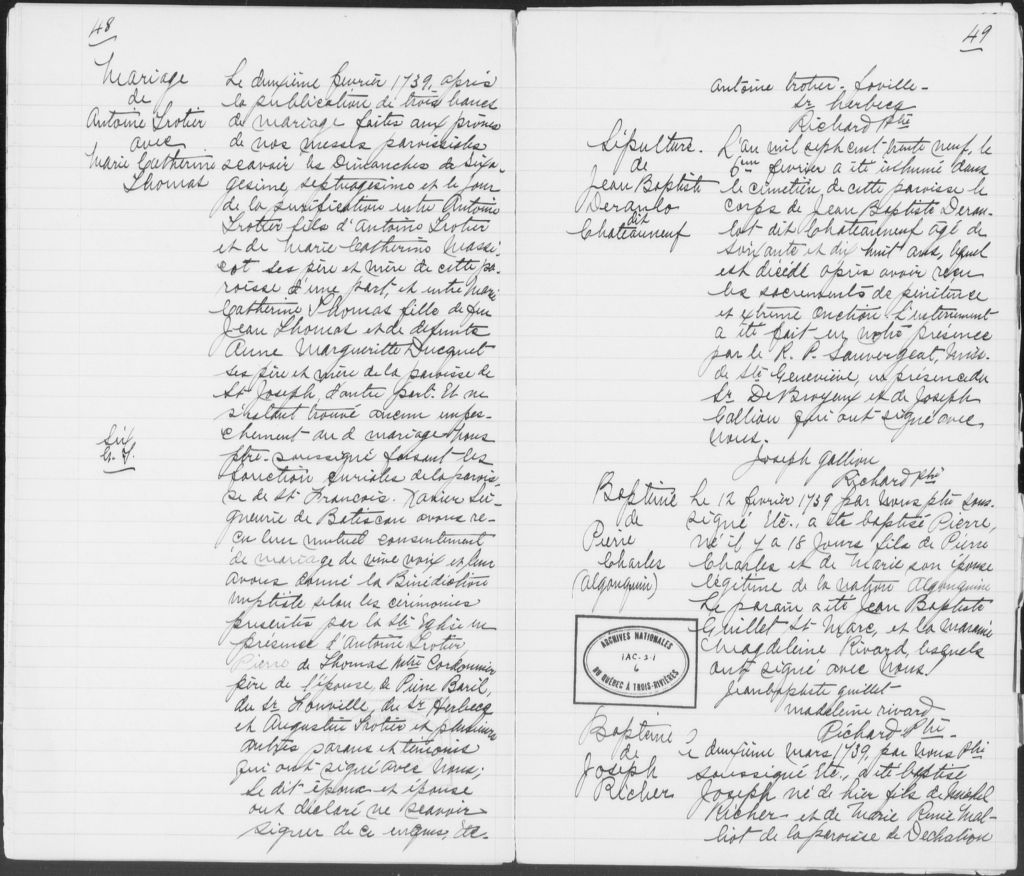 48
Mariage
de
Antoine Trotier
avec
Marie Catherine
Thomas
Le deuxième fevrier 1739, après
la publication de trois bancs
de mariage faites aux prônes
de nos messes paroissiales
scavoir les Dimanches de Sexa-
gesime, septuagesime et le jour
de la purification entre Antoine
Trotier fils d'Antoine Trotier
et de Marie Catherine Massi-
cot ses père et mère de cette pa-
roisse d'une part, et entre Marie
Catherine Thomas fille de feu
Jean Thomas et de defunte
Anne Margueritte Ducquet
ses père et mère de la paroisse de
St Joseph, d'autre part. Et ne
s'estant trouvé aucun empes-
chement au d mariage Nous
ptre soussigné faisant les
fonction curiales de la parois-
se de St François Xavier Sei-
gneurie de Batiscan avons re-
cu leur mutuel consentement
de mariage de vive voix et leur
avons donné la Bénédiction
nuptiale selon les cérémonies
prescrites par la Ste Eglise en
présence d'Antoine Trotier,
Pierre de Thomas Cordonnier
père de l'épouse, de Pierre Baril,
du Sr Louville, du Sr Herbecq
et Augustin Trotier et plusieurs
autres parans et témoins
qui ont signé avec nous;
Le dit époux et épouse
ont déclaré ne scavoir
signer de ce enquis, &c-
49
Antoine trotier - Loville -
Sr herbecq
Richard Ptre
Sépulture
de
Jean Baptiste
Deranlo
dit
Chateauneuf
L'an mil sept cent trente neuf, le
6em fevrier a été inhumé dans
le cimetière de cette paroisse le
corps de Jean Baptiste Deran-
lot dit Chateauneuf agé de
soixante et dix huit ans, lequel
est décédé après avoir recu
les sacrements de pénitence
et extreme onction L'enterrement
a été fait en notre présence
par le R. P. Sauvergeat, Miss.
de Ste Geneviève, en présence du
Sr De Broyeux et de Joseph
Gallion qui ont signé avec
nous.
Joseph gallion
Richard Ptre
Baptême
de
Pierre
Charles
(Algonquin)
Le 12 fevrier 1739 par nous ptre sous-
signé Etc., a été baptisé Pierre,
né il y a 18 Jours fils de Pierre
Charles et de Marie son épouse
légitime de la nation Algonquine
Le parain a été Jean Baptiste
Guillet St Marc, et la maraine
Magdeleine Rivard, lesquels
ont signé avec nous.
Jeanbaptiste guillet
madeleine rivard
Richard Ptre
ARCHIVES NATIONALES
1AC-3-1
6
DU QUÉBEC À TROIS-RIVIÈRES
Baptême
de
Joseph
Richer
Le deuxième mars 1739, par nous Ptre
soussigné Etc., a été baptisé
Joseph né de hier fils de Michel
Richer et de Marie Renée Mal-
liot de la paroisse de Dechation